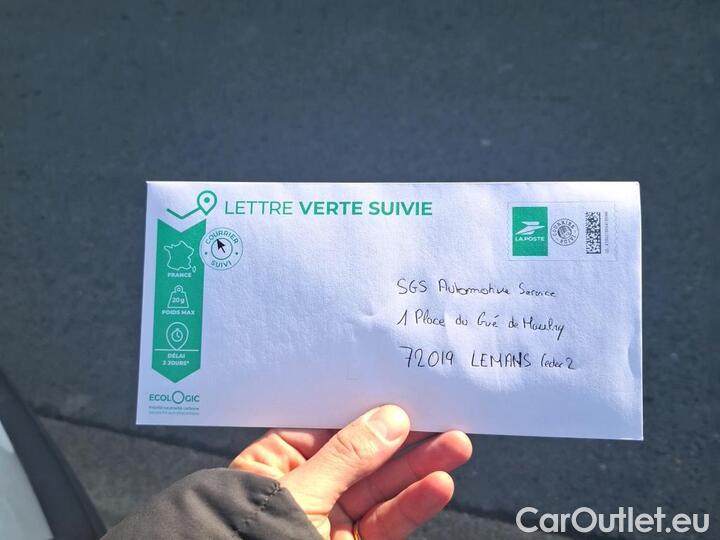 LETTRE VERTE SUIVIE
LA POSTE
COURRIER SUIVI
COURRIER
SUIVI
FRANCE
20g
POIDS MAX
DÉLAI
3 JOURS*
ECOLOGIC
Priorité neutralité carbone
SGS Automotive Service
1 Place du Gué de Maulny
72019 LEMANS Cedex 2
CarOutlet.eu